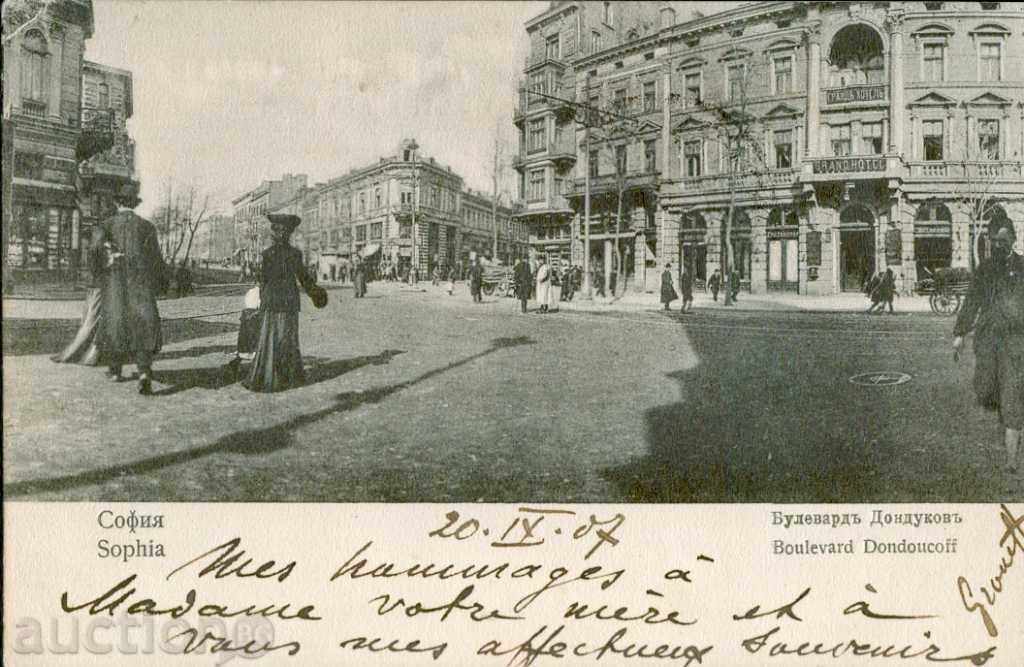 ГРАНДЪ ХОТЕЛЬ
GRAND HOTEL
София
Sophia
20. IX. 07
Булевардъ Дондуковъ
Boulevard Dondoucoff
Mes hommages à
Madame votre mère et à
vous mes affectueux souvenirs
auction.bg